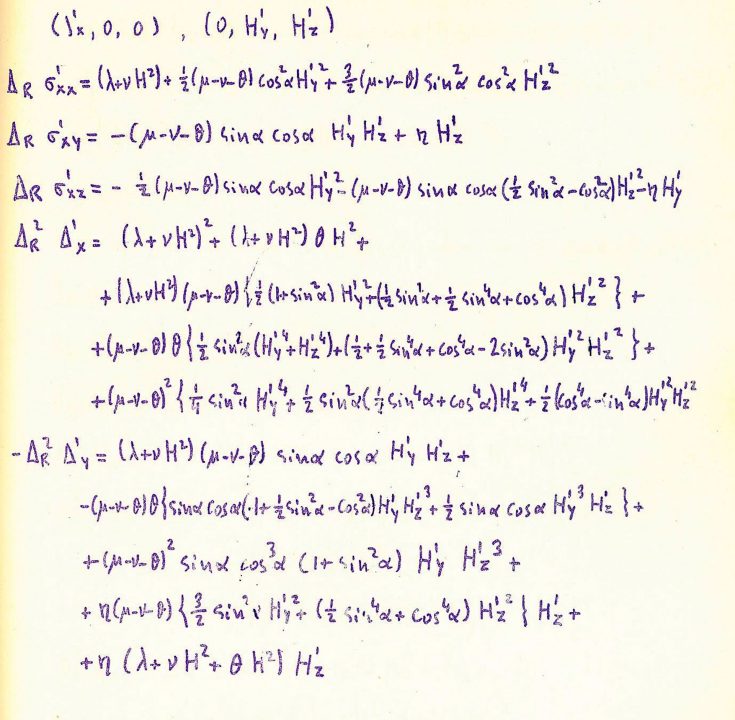 (J'x, 0, 0) , (0, H'y, H'z)
Δ_R σ'xx = (λ+νH²) + ½(μ-ν-θ) cos²α H'y² + 3/2 (μ-ν-θ) sin²α cos²α H'z²
Δ_R σ'xy = -(μ-ν-θ) sinα cosα H'y H'z + η H'z
Δ_R σ'xz = - ½(μ-ν-θ) sinα cosα H'y² - (μ-ν-θ) sinα cosα (½ sin²α - cos²α) H'z² - η H'y
Δ_R² Δ'x = (λ+νH²)² + (λ+νH²) θ H² +
+ (λ+νH²) (μ-ν-θ) {½ (1+sin²α) H'y² + (½ sin²α + ½ sin⁴α + cos⁴α) H'z²} +
+ (μ-ν-θ) θ {½ sin²α (H'y⁴ + H'z⁴) + (½ + ½ sin⁴α + cos⁴α - 2 sin²α) H'y² H'z²} +
+ (μ-ν-θ)² {¼ sin²α H'y⁴ + ½ sin²α (½ sin⁴α + cos⁴α) H'z⁴ + ½ (cos⁴α - sin⁴α) H'y² H'z²
- Δ_R² Δ'y = (λ+νH²) (μ-ν-θ) sinα cosα H'y H'z +
- (μ-ν-θ) θ {sinα cosα (-1 + ½ sin²α - cos²α) H'y H'z³ + ½ sinα cosα H'y³ H'z} +
+ (μ-ν-θ)² sinα cos³α (1 + sin²α) H'y H'z³ +
+ η (μ-ν-θ) {3/2 sin²α H'y² + (½ sin⁴α + cos⁴α) H'z²} H'z +
+ η (λ+νH² + θH²) H'z